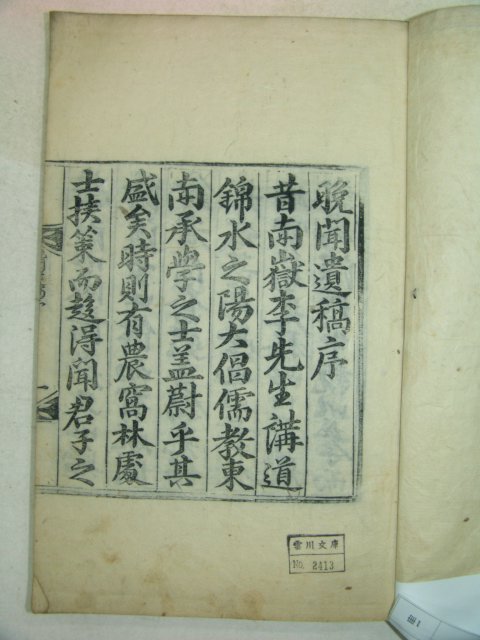 晩聞遺稿序
昔南嶽李先生講道
錦水之陽大倡儒教東
南承学之士盖蔚乎其
盛矣時則有農窩林處
士扶策而趍得聞君子之
雲川文庫
No. 2413